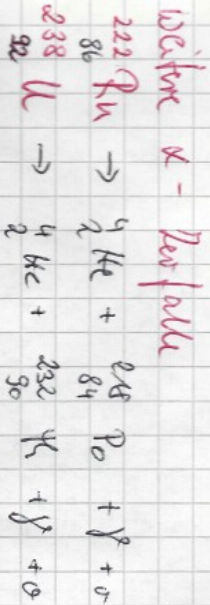 weitere α - Zerfälle
²²²₈₆ Rn → ⁴₂ He + ²¹⁸₈₄ Po + γ + σ
²³⁸₉₂ U → ⁴₂ He + ²³²₉₀ Th + γ + σ